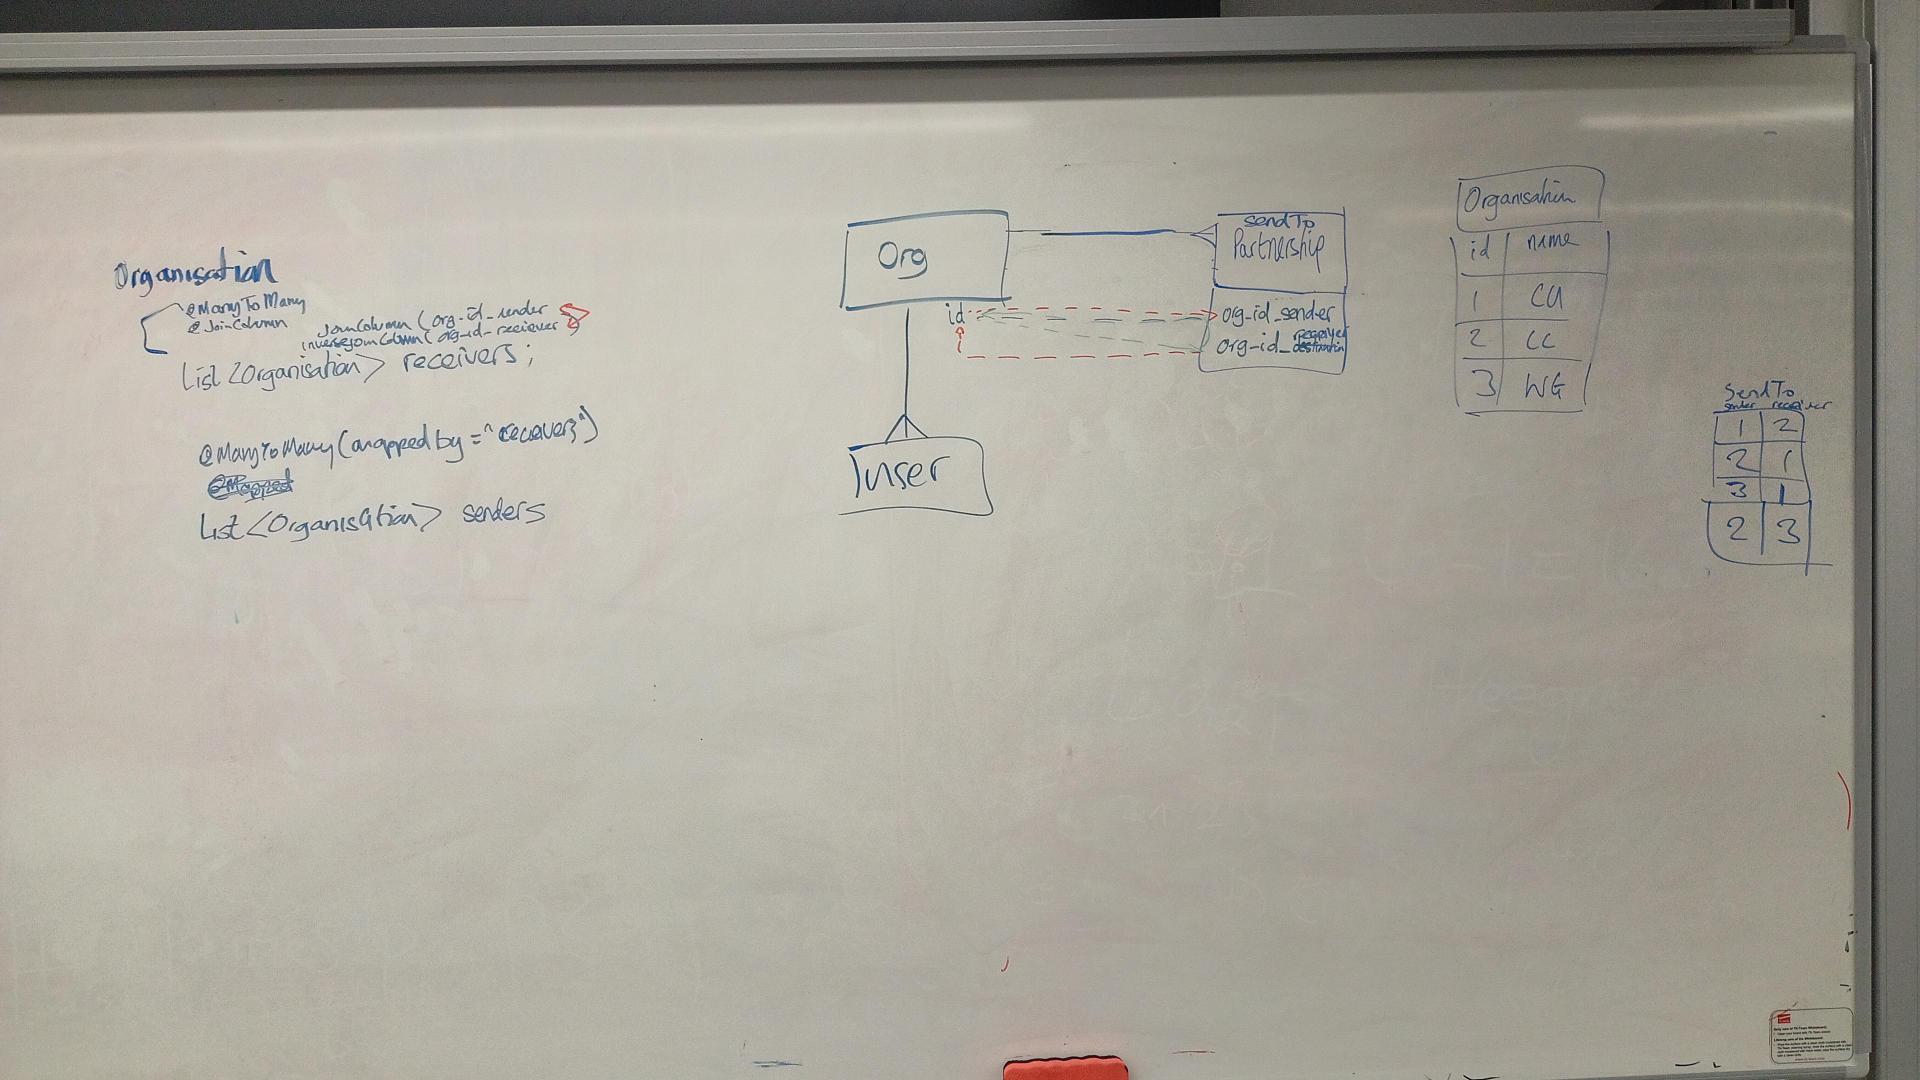 Organisation
@ManyToMany
@JoinColumn
JoinColumn (org-id_sender
inverseJoinColumn (org-id-reciever
List <Organisation> receivers;
@ManyToMany (mapped by = "receivers")
List <Organisation> senders
Org
id
Iuser
SendTo
Partnership
org-id_sender
receiver
org-id_destination
Organisation
id name
1 CU
2 CC
3 WG
SendTo
sender receiver
1 2
2 1
3 1
2 3